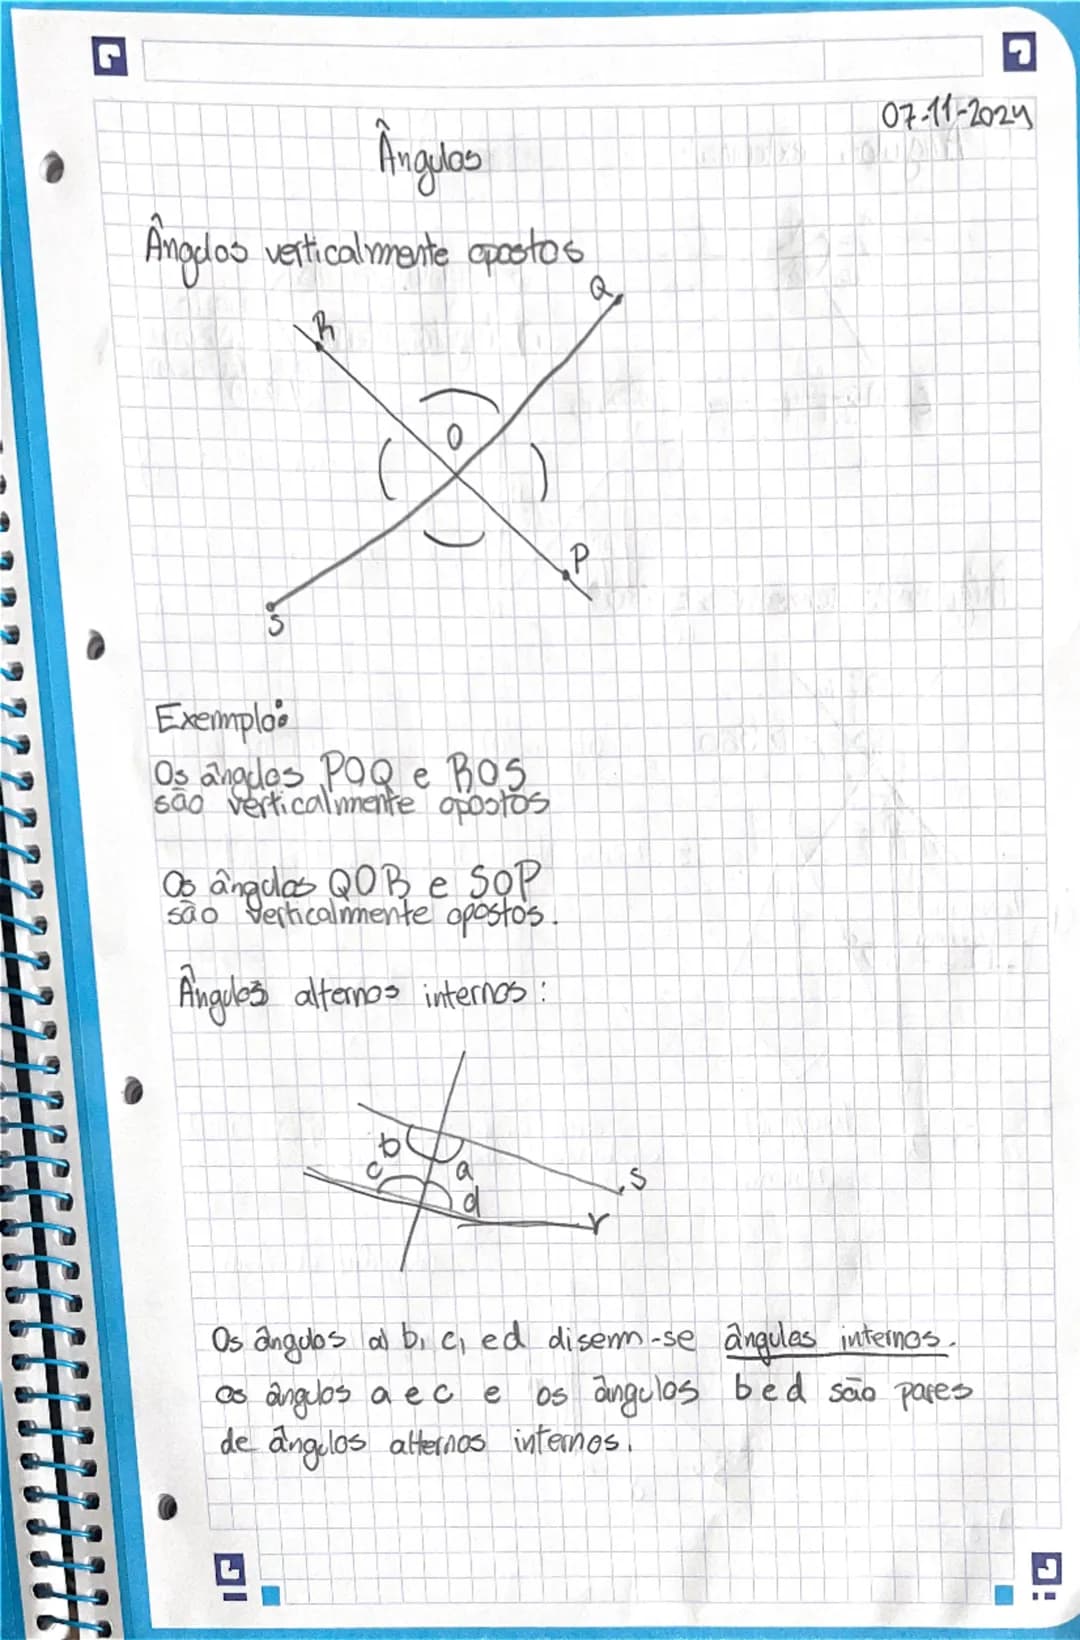 07-11-2024
Ângulos
Ângulos verticalmente opostos
Q
R
O
P
S
Exemplo:
Os ângulos POQ e ROS
são verticalmente opostos
Os ângulos QOR e SOP
são verticalmente opostos.
Ângulos alternos internos:
b
c
a
d
s
r
Os ângulos a, b, c, e d disem-se ângulos internos.
os ângulos a e c e os ângulos b e d são pares
de ângulos alternos internos.